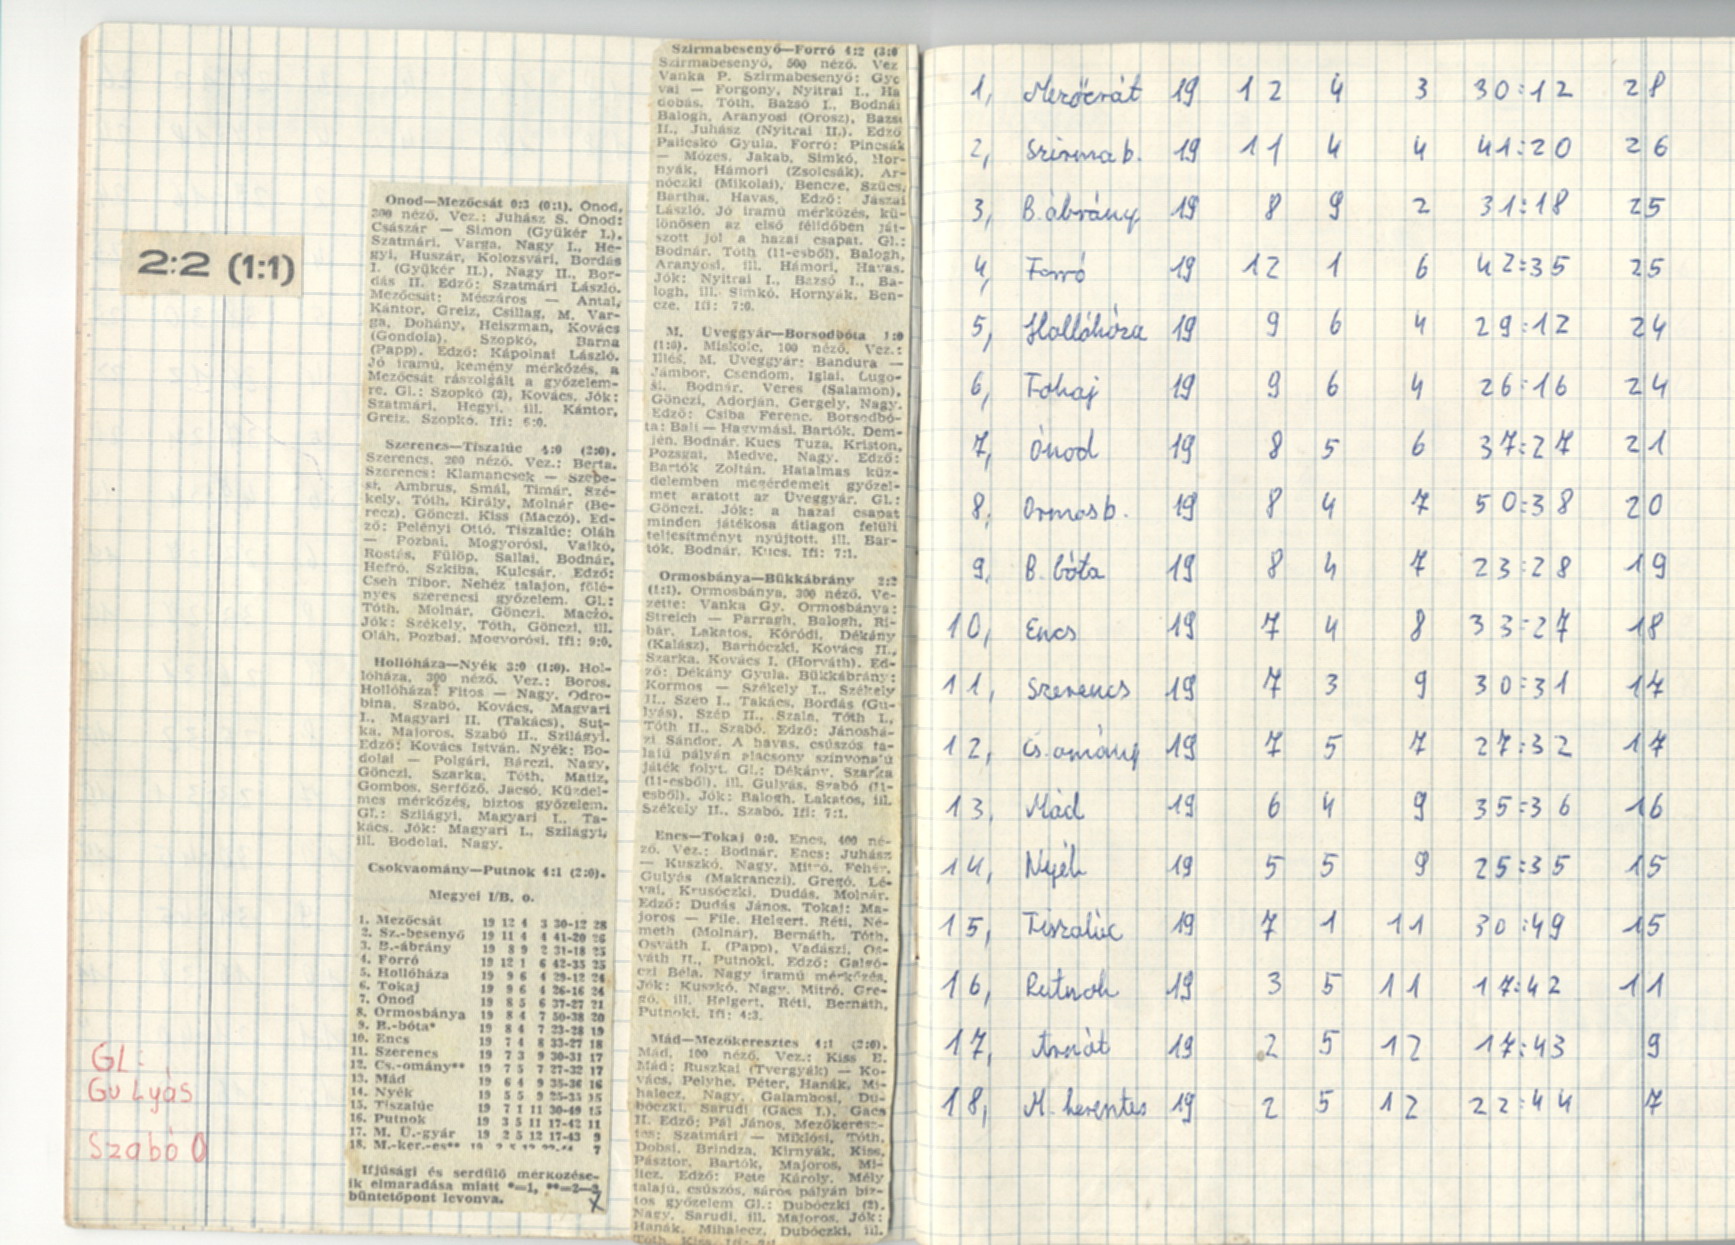 2:2 (1:1)
GL:
Gulyás
Szabó O
Ónod—Mezőcsát 0:3 (0:1). Ónod,
200 néző. Vez.: Juhász S. Ónod:
Császár — Simon (Gyükér I.),
Szatmári, Varga, Nagy I., He-
gyi, Huszár, Kolozsvári, Bordás
I. (Gyükér II.), Nagy II., Bor-
dás II. Edző: Szatmári László.
Mezőcsát: Mészáros — Antal,
Kántor, Greiz, Csillag, M. Var-
ga, Dohány, Heiszman, Kovács
(Gondola), Szopkó, Barna
(Papp). Edző: Kápolnai László.
Jó iramú, kemény mérkőzés, a
Mezőcsát rászolgált a győzelem-
re. Gl.: Szopkó (2), Kovács. Jók:
Szatmári, Hegyi, ill. Kántor,
Greiz, Szopkó. Ifi: 6:0.
Szerencs—Tiszalúc 4:0 (2:0).
Szerencs, 200 néző. Vez.: Berta.
Szerencs: Klamancsek — Szepe-
si, Ambrus, Smál, Timár, Szé-
kely, Tóth, Király, Molnár (Be-
recz), Gönczi, Kiss (Maczó). Ed-
ző: Pelényi Ottó. Tiszalúc: Oláh
— Pozbai, Mogyorósi, Vajkó,
Rostás, Fülöp, Sallai, Bodnár,
Hefró, Szkiba, Kulcsár. Edző:
Cseh Tibor. Nehéz talajon, fölé-
nyes szerencsi győzelem. Gl.:
Tóth, Molnár, Gönczi, Maczó.
Jók: Székely, Tóth, Gönczi, ill.
Oláh, Pozbai, Mogyorósi. Ifi: 9:0.
Hollóháza—Nyék 3:0 (1:0). Hol-
lóháza, 300 néző. Vez.: Boros.
Hollóháza: Fitos — Nagy, Odro-
bina, Szabó, Kovács, Magyari
I., Magyari II. (Takács), Sut-
ka, Majoros, Szabó II., Szilágyi.
Edző: Kovács István. Nyék: Bo-
dolai — Polgári, Bárczi, Nagy,
Gönczi, Szarka, Tóth, Matiz,
Gombos, Serfőző, Jacsó. Küzdel-
mes mérkőzés, biztos győzelem.
Gl.: Szilágyi, Magyari I., Ta-
kács. Jók: Magyari I., Szilágyi,
ill. Bodolai, Nagy.
Csokvaomány—Putnok 4:1 (2:0).
Megyei I/B. o.
1. Mezőcsát 19 12 4 3 30-12 28
2. Sz.-besenyő 19 11 4 4 41-20 26
3. B.-ábrány 19 8 9 2 31-18 25
4. Forró 19 12 1 6 42-35 25
5. Hollóháza 19 9 6 4 29-12 24
6. Tokaj 19 9 6 4 26-16 24
7. Ónod 19 8 5 6 37-27 21
8. Ormosbánya 19 8 4 7 50-38 20
9. B.-bóta* 19 8 4 7 23-28 19
10. Encs 19 7 4 8 33-27 18
11. Szerencs 19 7 3 9 30-31 17
12. Cs.-omány** 19 7 5 7 27-32 17
13. Mád 19 6 4 9 35-36 16
14. Nyék 19 5 5 9 25-35 15
15. Tiszalúc 19 7 1 11 30-49 15
16. Putnok 19 3 5 11 17-42 11
17. M. Ü.-gyár 19 2 5 12 17-43 9
18. M.-ker.-es** 19 2 5 12 22-44 7
Ifjúsági és serdülő mérkőzése-
ik elmaradása miatt *=1, **=2—2
büntetőpont levonva.
X
Szirmabesenyő—Forró 4:2 (3:0
Szirmabesenyő, 500 néző. Vez
Vanka P. Szirmabesenyő: Gyo
vai — Forgony, Nyitrai I., Ha
dobás, Tóth, Bazsó I., Bodnár
Balogh, Aranyosi (Orosz), Bazsó
II., Juhász (Nyitrai II.). Edző
Palicskó Gyula. Forró: Pincsák
— Mózes, Jakab, Simkó, Hor-
nyák, Hámori (Zsolcsák), Ar-
nóczki (Mikolai), Bencze, Szűcs,
Bartha, Havas. Edző: Jászai
László. Jó iramú mérkőzés, kü-
lönösen az első félidőben ját-
szott jól a hazai csapat. Gl.:
Bodnár, Tóth (11-esből), Balogh,
Aranyosi, ill. Hámori, Havas.
Jók: Nyitrai I., Bazsó I., Ba-
logh, ill. Simkó, Hornyák, Ben-
cze. Ifi: 7:0.
M. Üveggyár—Borsodbóta 1:0
(1:0). Miskolc, 100 néző. Vez.:
Illés. M. Üveggyár: Bandura —
Jámbor, Csendom, Iglai, Lugo-
si, Bodnár, Veres (Salamon),
Gönczi, Adorján, Gergely, Nagy.
Edző: Csiba Ferenc. Borsodbó-
ta: Bali — Hagymási, Bartók, Dem-
jén, Bodnár, Kucs Tuza, Kriston,
Pozsgai, Medve, Nagy. Edző:
Bartók Zoltán. Hatalmas küz-
delemben megérdemelt győzel-
met aratott az Üveggyár. Gl.:
Gönczi. Jók: a hazai csapat
minden játékosa átlagon felüli
teljesítményt nyújtott, ill. Bar-
tók, Bodnár, Kucs. Ifi: 7:1.
Ormosbánya—Bükkábrány 2:2
(1:1). Ormosbánya, 300 néző. Ve-
zette: Vanka Gy. Ormosbánya:
Streich — Parragh, Balogh, Ri-
bár, Lakatos, Kóródi, Dékány
(Kalász), Barnóczki, Kovács II.,
Szarka, Kovács I. (Horváth). Ed-
ző: Dékány Gyula. Bükkábrány:
Kormos — Székely I., Székely
II., Szép I., Takács, Bordás (Gu-
lyás), Szép II., Szala, Tóth I.,
Tóth II., Szabó. Edző: Jánoshá-
zi Sándor. A havas, csúszós ta-
lajú pályán alacsony színvonalú
játék folyt. Gl.: Dékány, Szarka
(11-esből), ill. Gulyás, Szabó (11-
esből). Jók: Balogh, Lakatos, ill.
Székely II., Szabó. Ifi: 7:1.
Encs—Tokaj 0:0. Encs, 400 né-
ző. Vez.: Bodnár. Encs: Juhász
— Kuszkó, Nagy, Mitró, Fehér,
Gulyás (Makranczi), Gregó, Lé-
vai, Krusóczki, Dudás, Molnár.
Edző: Dudás János. Tokaj: Ma-
joros — File, Helgert, Réti, Né-
meth (Molnár), Bernáth, Tóth,
Osváth I. (Papp), Vadászi, Os-
váth II., Putnoki. Edző: Galgó-
czi Béla. Nagy iramú mérkőzés.
Jók: Kuszkó, Nagy, Mitró, Gre-
gó, ill. Helgert, Réti, Bernáth,
Putnoki. Ifi: 4:3.
Mád—Mezőkeresztes 4:1 (2:0).
Mád, 100 néző. Vez.: Kiss E.
Mád: Ruszkai (Tvergyák) — Ko-
vács, Pelyhe, Péter, Hanák, Mi-
halecz, Nagy, Galambosi, Du-
bóczki, Sarudi (Gács I.), Gács
II. Edző: Pál János. Mezőkeresz-
tes: Szatmári — Miklósi, Tóth,
Dobsi, Brindza, Kirnyák, Kiss,
Pásztor, Bartók, Majoros, Mi-
licz. Edző: Pete Károly. Mély
talajú, csúszós, sáros pályán biz-
tos győzelem Gl.: Dubóczki (2),
Nagy, Sarudi, ill. Majoros. Jók:
Hanák, Mihalecz, Dubóczki, ill.
Tóth, Kiss. Ifi:
1, Mezőcsát 19 12 4 3 30:12 28
2, Szirmab. 19 11 4 4 41:20 26
3, B.ábrány 19 8 9 2 31:18 25
4, Forró 19 12 1 6 42:35 25
5, Hollóháza 19 9 6 4 29:12 24
6, Tokaj 19 9 6 4 26:16 24
7, Ónod 19 8 5 6 37:27 21
8, Ormosb. 19 8 4 7 50:38 20
9, B.bóta 19 8 4 7 23:28 19
10, Encs 19 7 4 8 33:27 18
11, Szerencs 19 7 3 9 30:31 17
12, Cs.omány 19 7 5 7 27:32 17
13, Mád 19 6 4 9 35:36 16
14, Nyék 19 5 5 9 25:35 15
15, Tiszalúc 19 7 1 11 30:49 15
16, Putnok 19 3 5 11 17:42 11
17, 19 2 5 12 17:43 9
18, M.keresztes 19 2 5 12 22:44 7